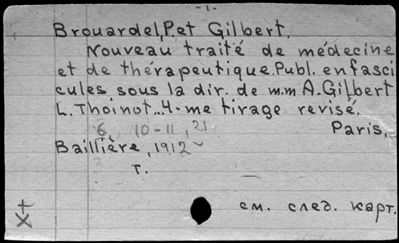 - 1. -
Brouardel, P. et Gilbert,
Nouveau traité de médecine
et de thérapeutique. Publ. en fasci
cules sous la dir. de m.m A. Gilbert
L. Thoinot... 4-me tirage revisé.
6, 10-11, 21
Paris,
Baillière, 1912
т.
см. след. карт.